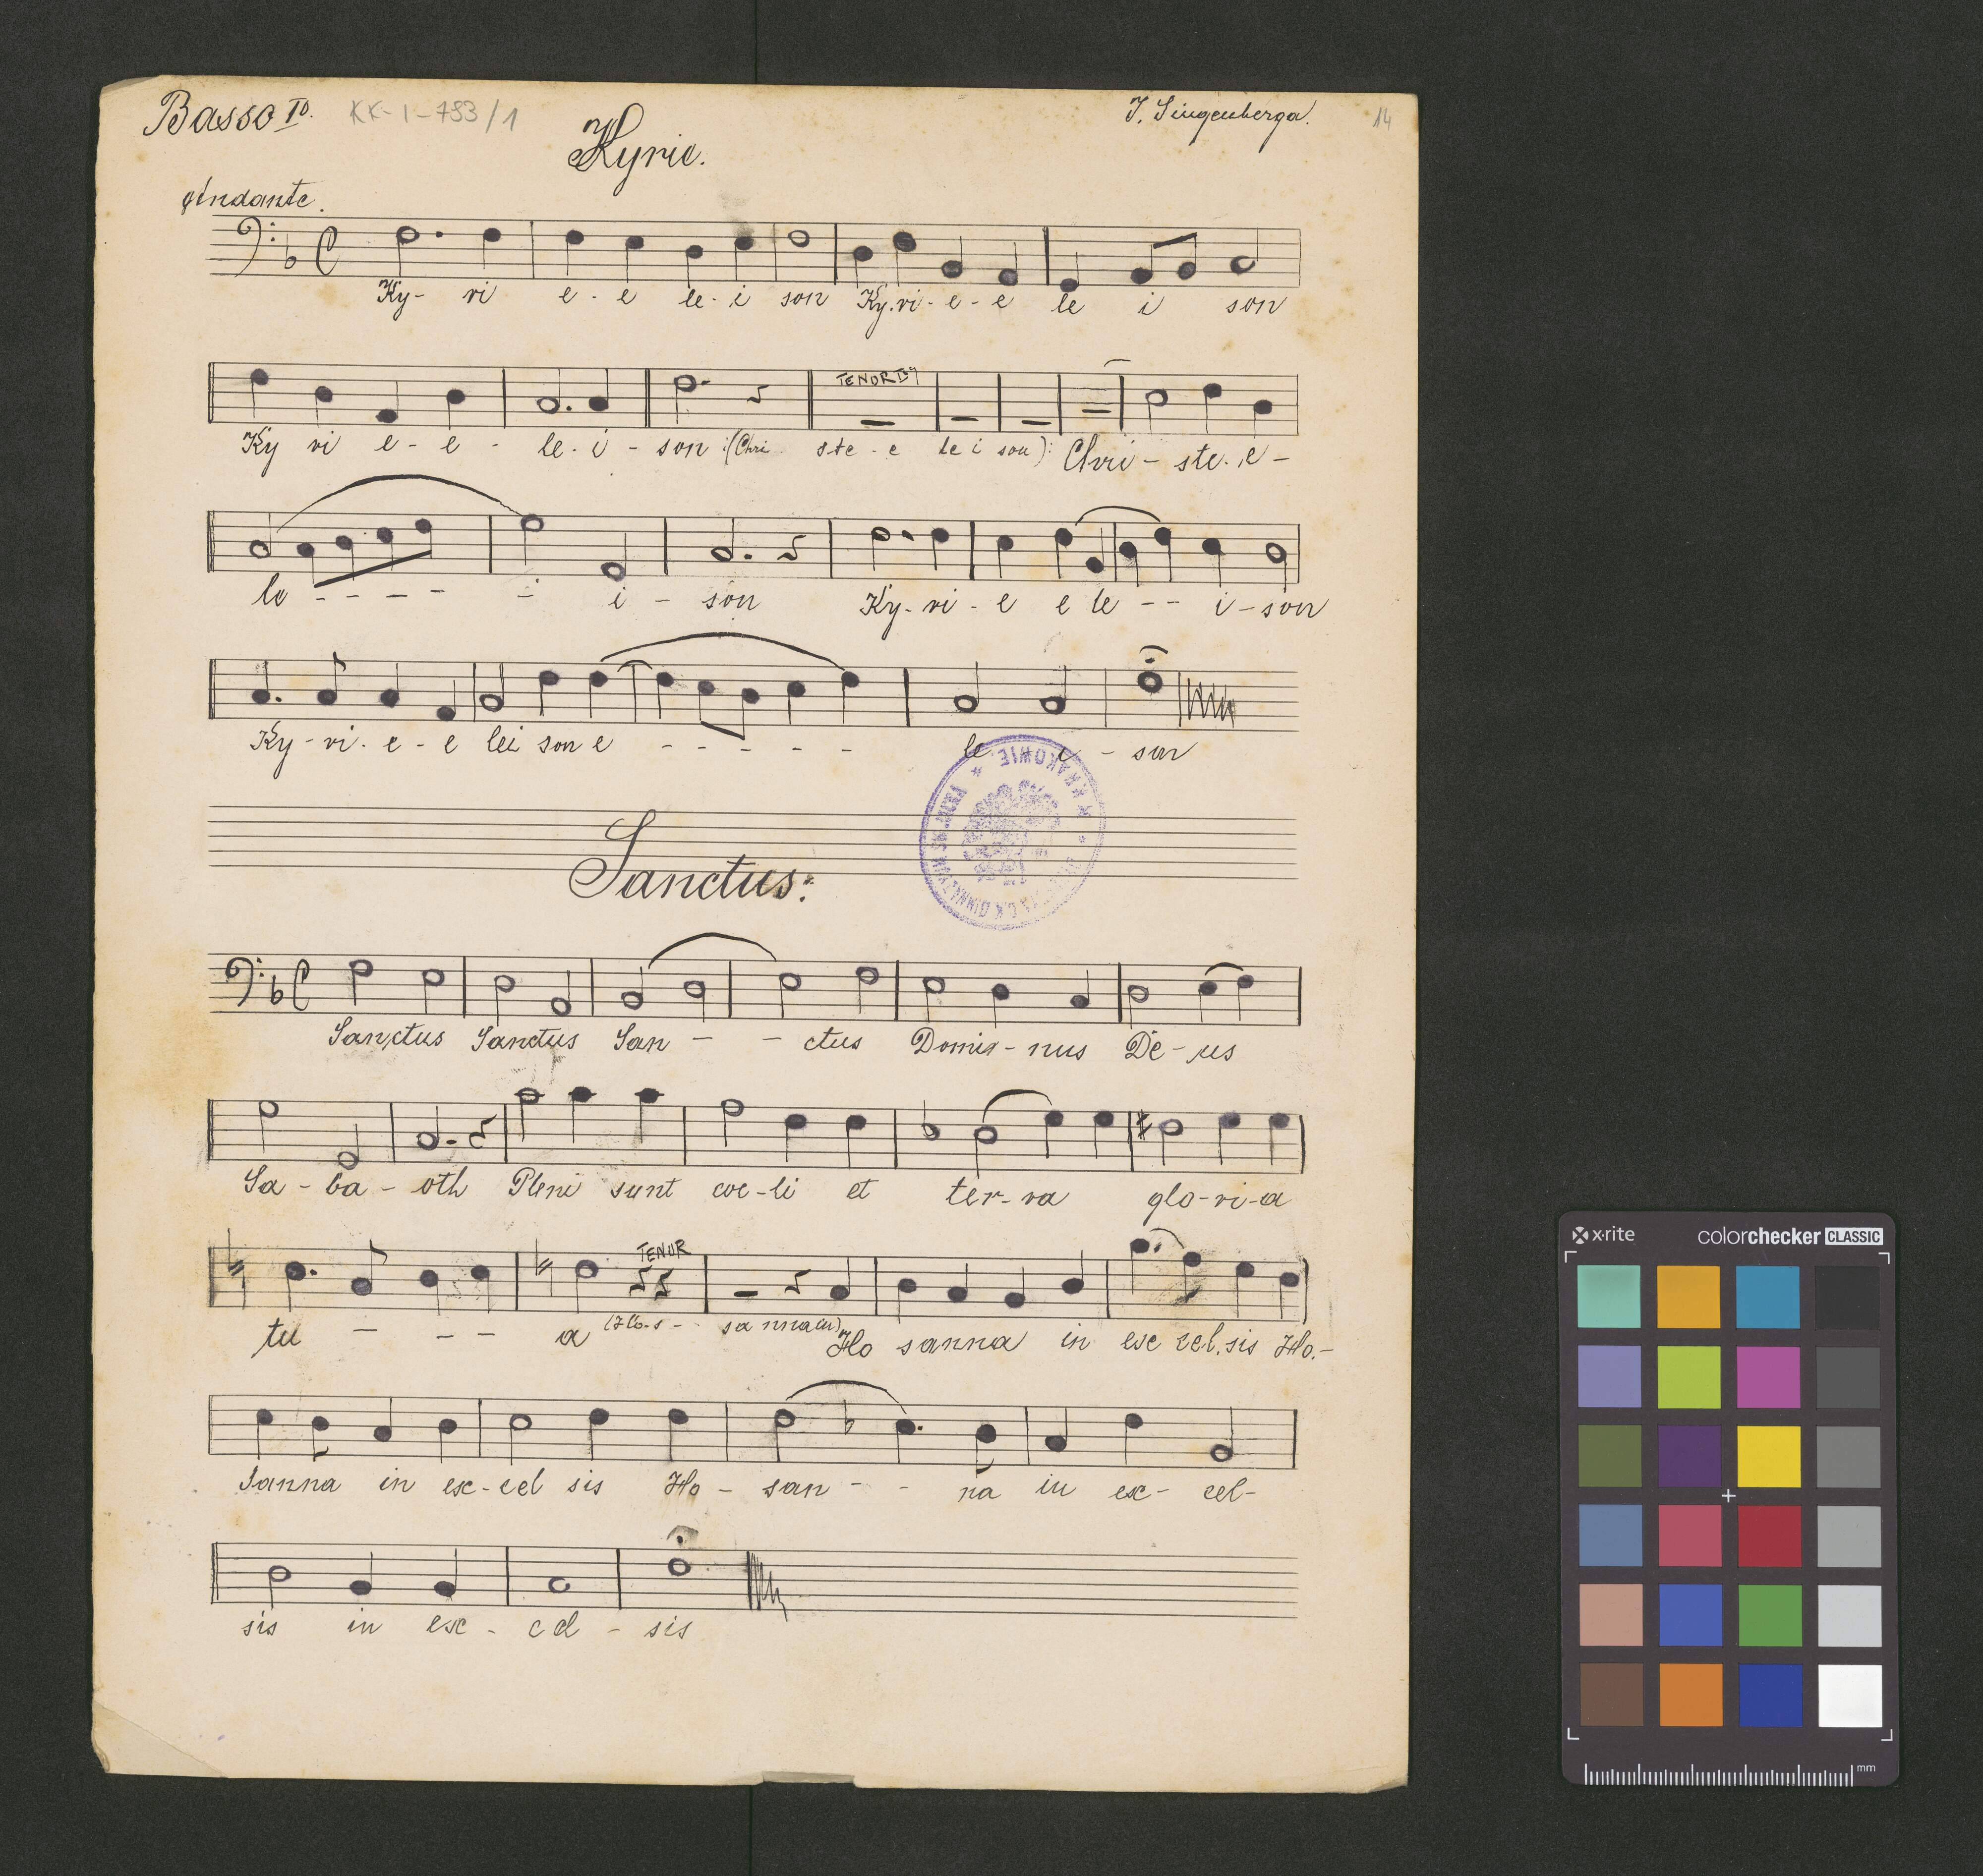 Basso Io. KK-I-783/1 J. Singenberga. 14
Kyrie.
Andante.
Ky- ri e - e le - i son Ky. ri - e - e le i son
TENOR Io
Ky ri e - e - le - i - son :(Chri ste - e le i son): Chri - ste. e -
le - - - - - i - son Ky - ri - e e le - - i - son
Ky - ri - e - e lei son e - - - - - le i - son
W KRAKOWIE
Sanctus:
Sanctus Sanctus San - - ctus Domi - nus De - us
Sa - ba - oth Pleni sunt coe - li et ter - ra glo - ri - a
TENOR
tu - - - a (Ho - s - sanna in) Ho sanna in exc cel. sis Ho. -
sanna in ex - cel sis Ho - san - - na in ex - cel -
sis in exc - cel - sis
x·rite colorchecker CLASSIC
mm